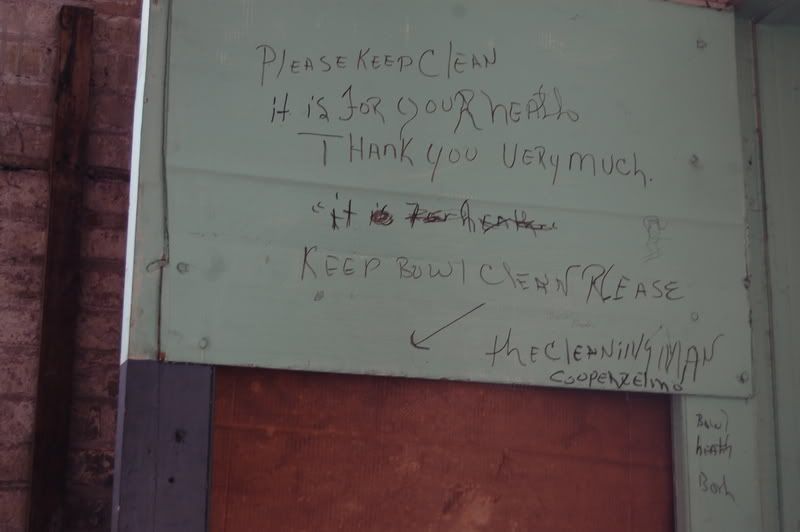 PLEASE KEEP CLEAN
it is FOR YOUR health
THANK YOU VERY MUCH.
"it is For health
KEEP BOWl ClEAN PLEASE
the CLEANiNG MAN
COOPER
Bowl
heath